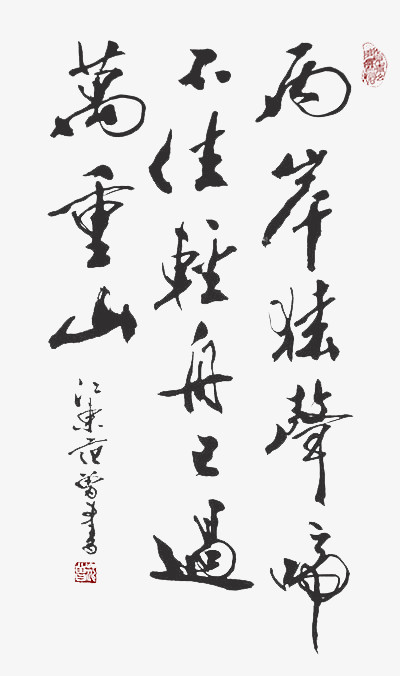 两岸猿聲啼
不住輕舟已過
萬重山
江東范曾書